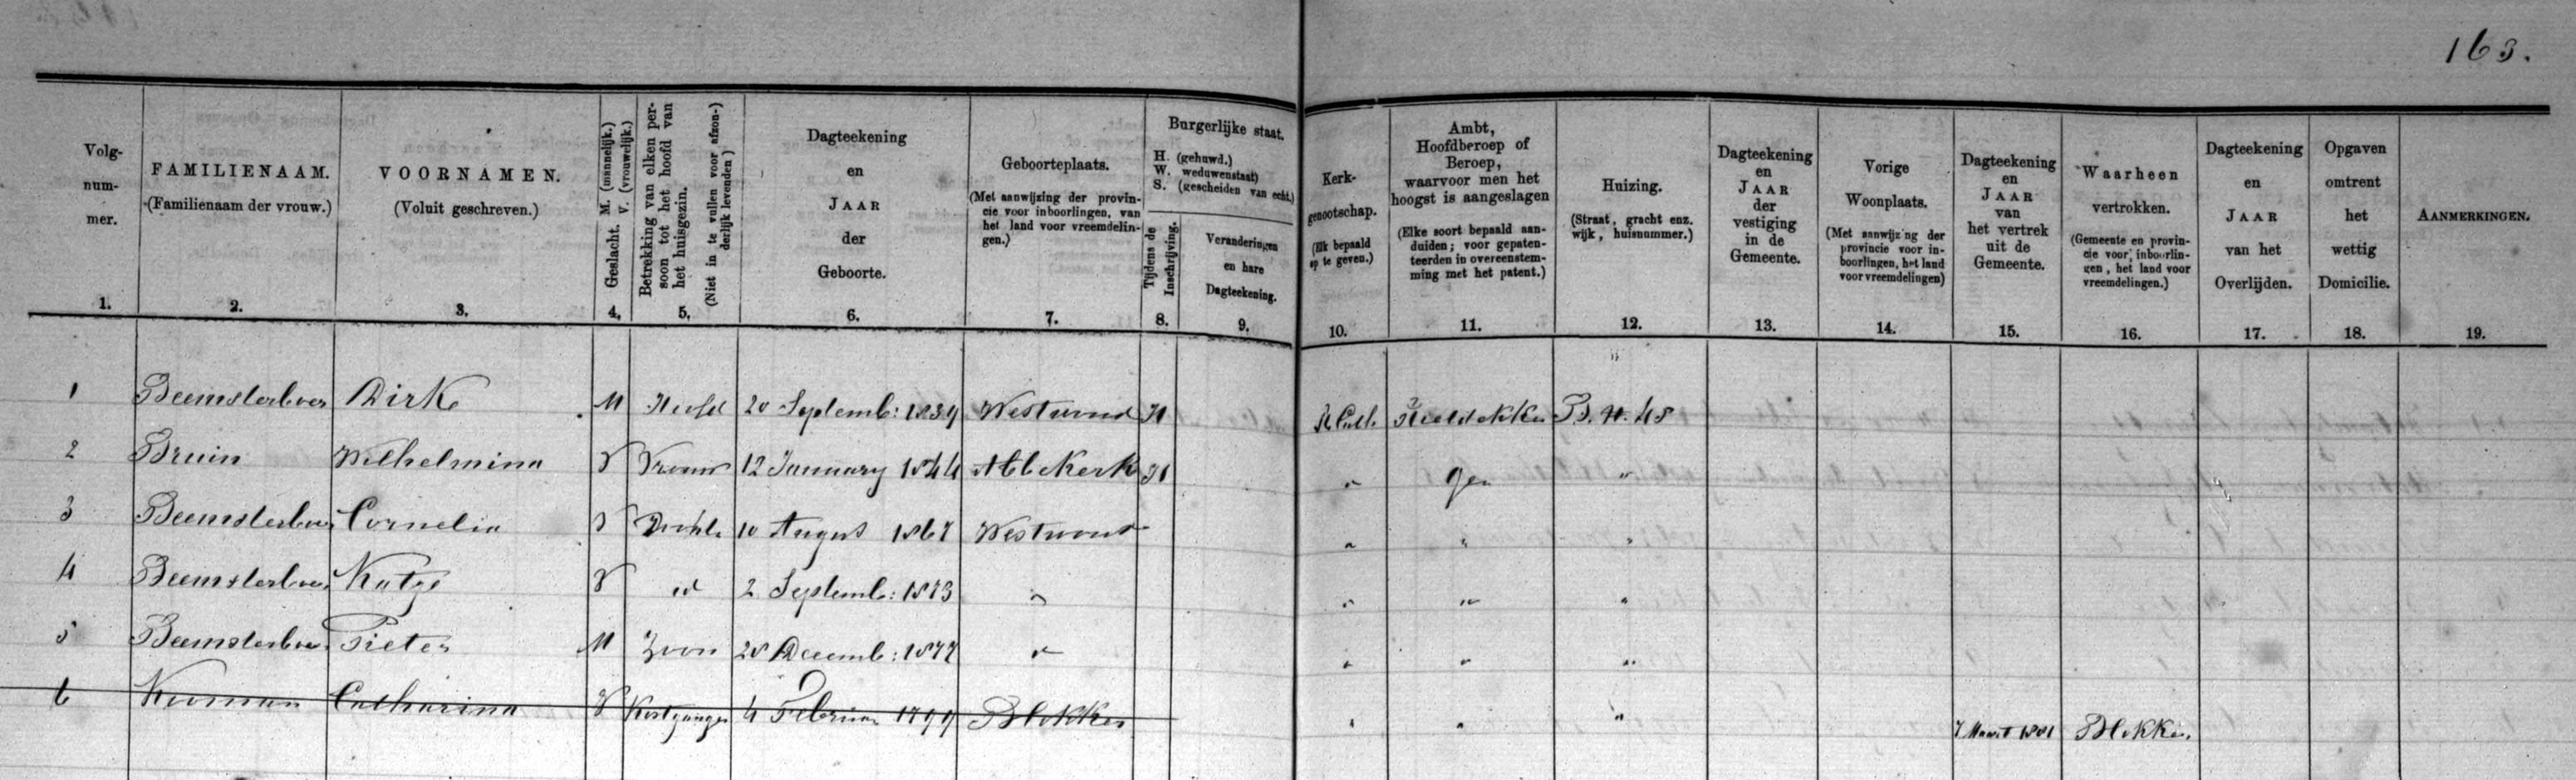 163.
Volg-
num-
mer.
1.
FAMILIENAAM.
(Familienaam der vrouw.)
2.
VOORNAMEN.
(Voluit geschreven.)
3.
Geslacht. M. (mannelijk.)
V. (vrouwelijk.)
4.
Betrekking van elken per-
soon tot het hoofd van
het huisgezin.
(Niet in te vullen voor afzon-
derlijk levenden)
5.
Dagteekening
en
JAAR
der
Geboorte.
6.
Geboorteplaats.
(Met aanwijzing der provin-
cie voor inboorlingen, van
het land voor vreemdelin-
gen.)
7.
Burgerlijke staat.
H. (gehuwd.)
W. weduwenstaat)
S. (gescheiden van echt.)
Tijdens de
Inschrijving.
8.
Veranderingen
en hare
Dagteekening.
9.
Kerk-
genootschap.
(Elk bepaald
op te geven.)
10.
Ambt,
Hoofdberoep of
Beroep,
waarvoor men het
hoogst is aangeslagen
(Elke soort bepaald aan-
duiden; voor gepaten-
teerden in overeenstem-
ming met het patent.)
11.
Huizing.
(Straat, gracht enz.
wijk, huisnummer.)
12.
Dagteekening
en
JAAR
der
vestiging
in de
Gemeente.
13.
Vorige
Woonplaats.
(Met aanwijzing der
provincie voor in-
boorlingen, het land
voor vreemdelingen)
14.
Dagteekening
en
JAAR
van
het vertrek
uit de
Gemeente.
15.
Waarheen
vertrokken.
(Gemeente en provin-
cie voor inboorlin-
gen, het land voor
vreemdelingen.)
16.
Dagteekening
en
JAAR
van het
Overlijden.
17.
Opgaven
omtrent
het
wettig
Domicilie.
18.
AANMERKINGEN.
19.
1 Beemsterboer Dirk M Hoofd 20 Septemb: 1839 Westwoud H R Cath. Rietdekker B. N. 48
2 Bruin Wilhelmina V Vrouw 12 January 1844 Abbekerk H " geen "
3 Beemsterboer Cornelia V Dochter 10 August 1867 Westwoud " " "
4 Beemsterboer Katge V id 2 Septemb: 1873 " " " "
5 Beemsterboer Pieter M Zoon 28 Decemb: 1877 " " " "
6 Kooman Catharina V Kostganger 4 Februar 1799 Blokker " " " 7 Maart 1881 Blokker.